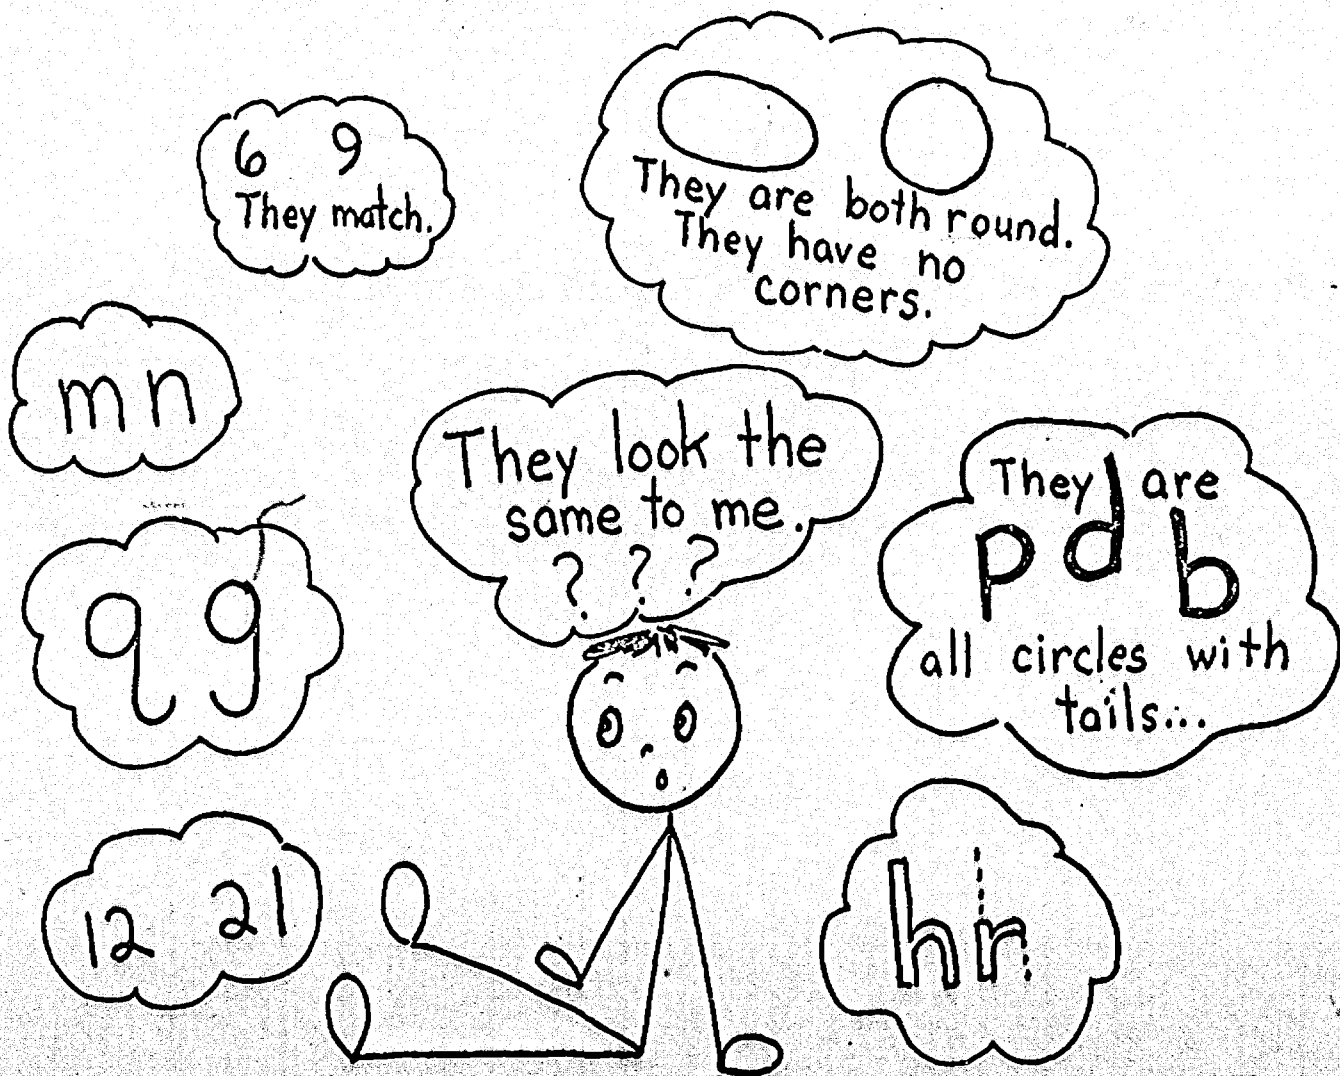 6 9
They match.
They are both round.
They have no
corners.
m n
They look the
same to me.
? ? ?
They are
p d b
all circles with
tails...
q g
12 21
h r